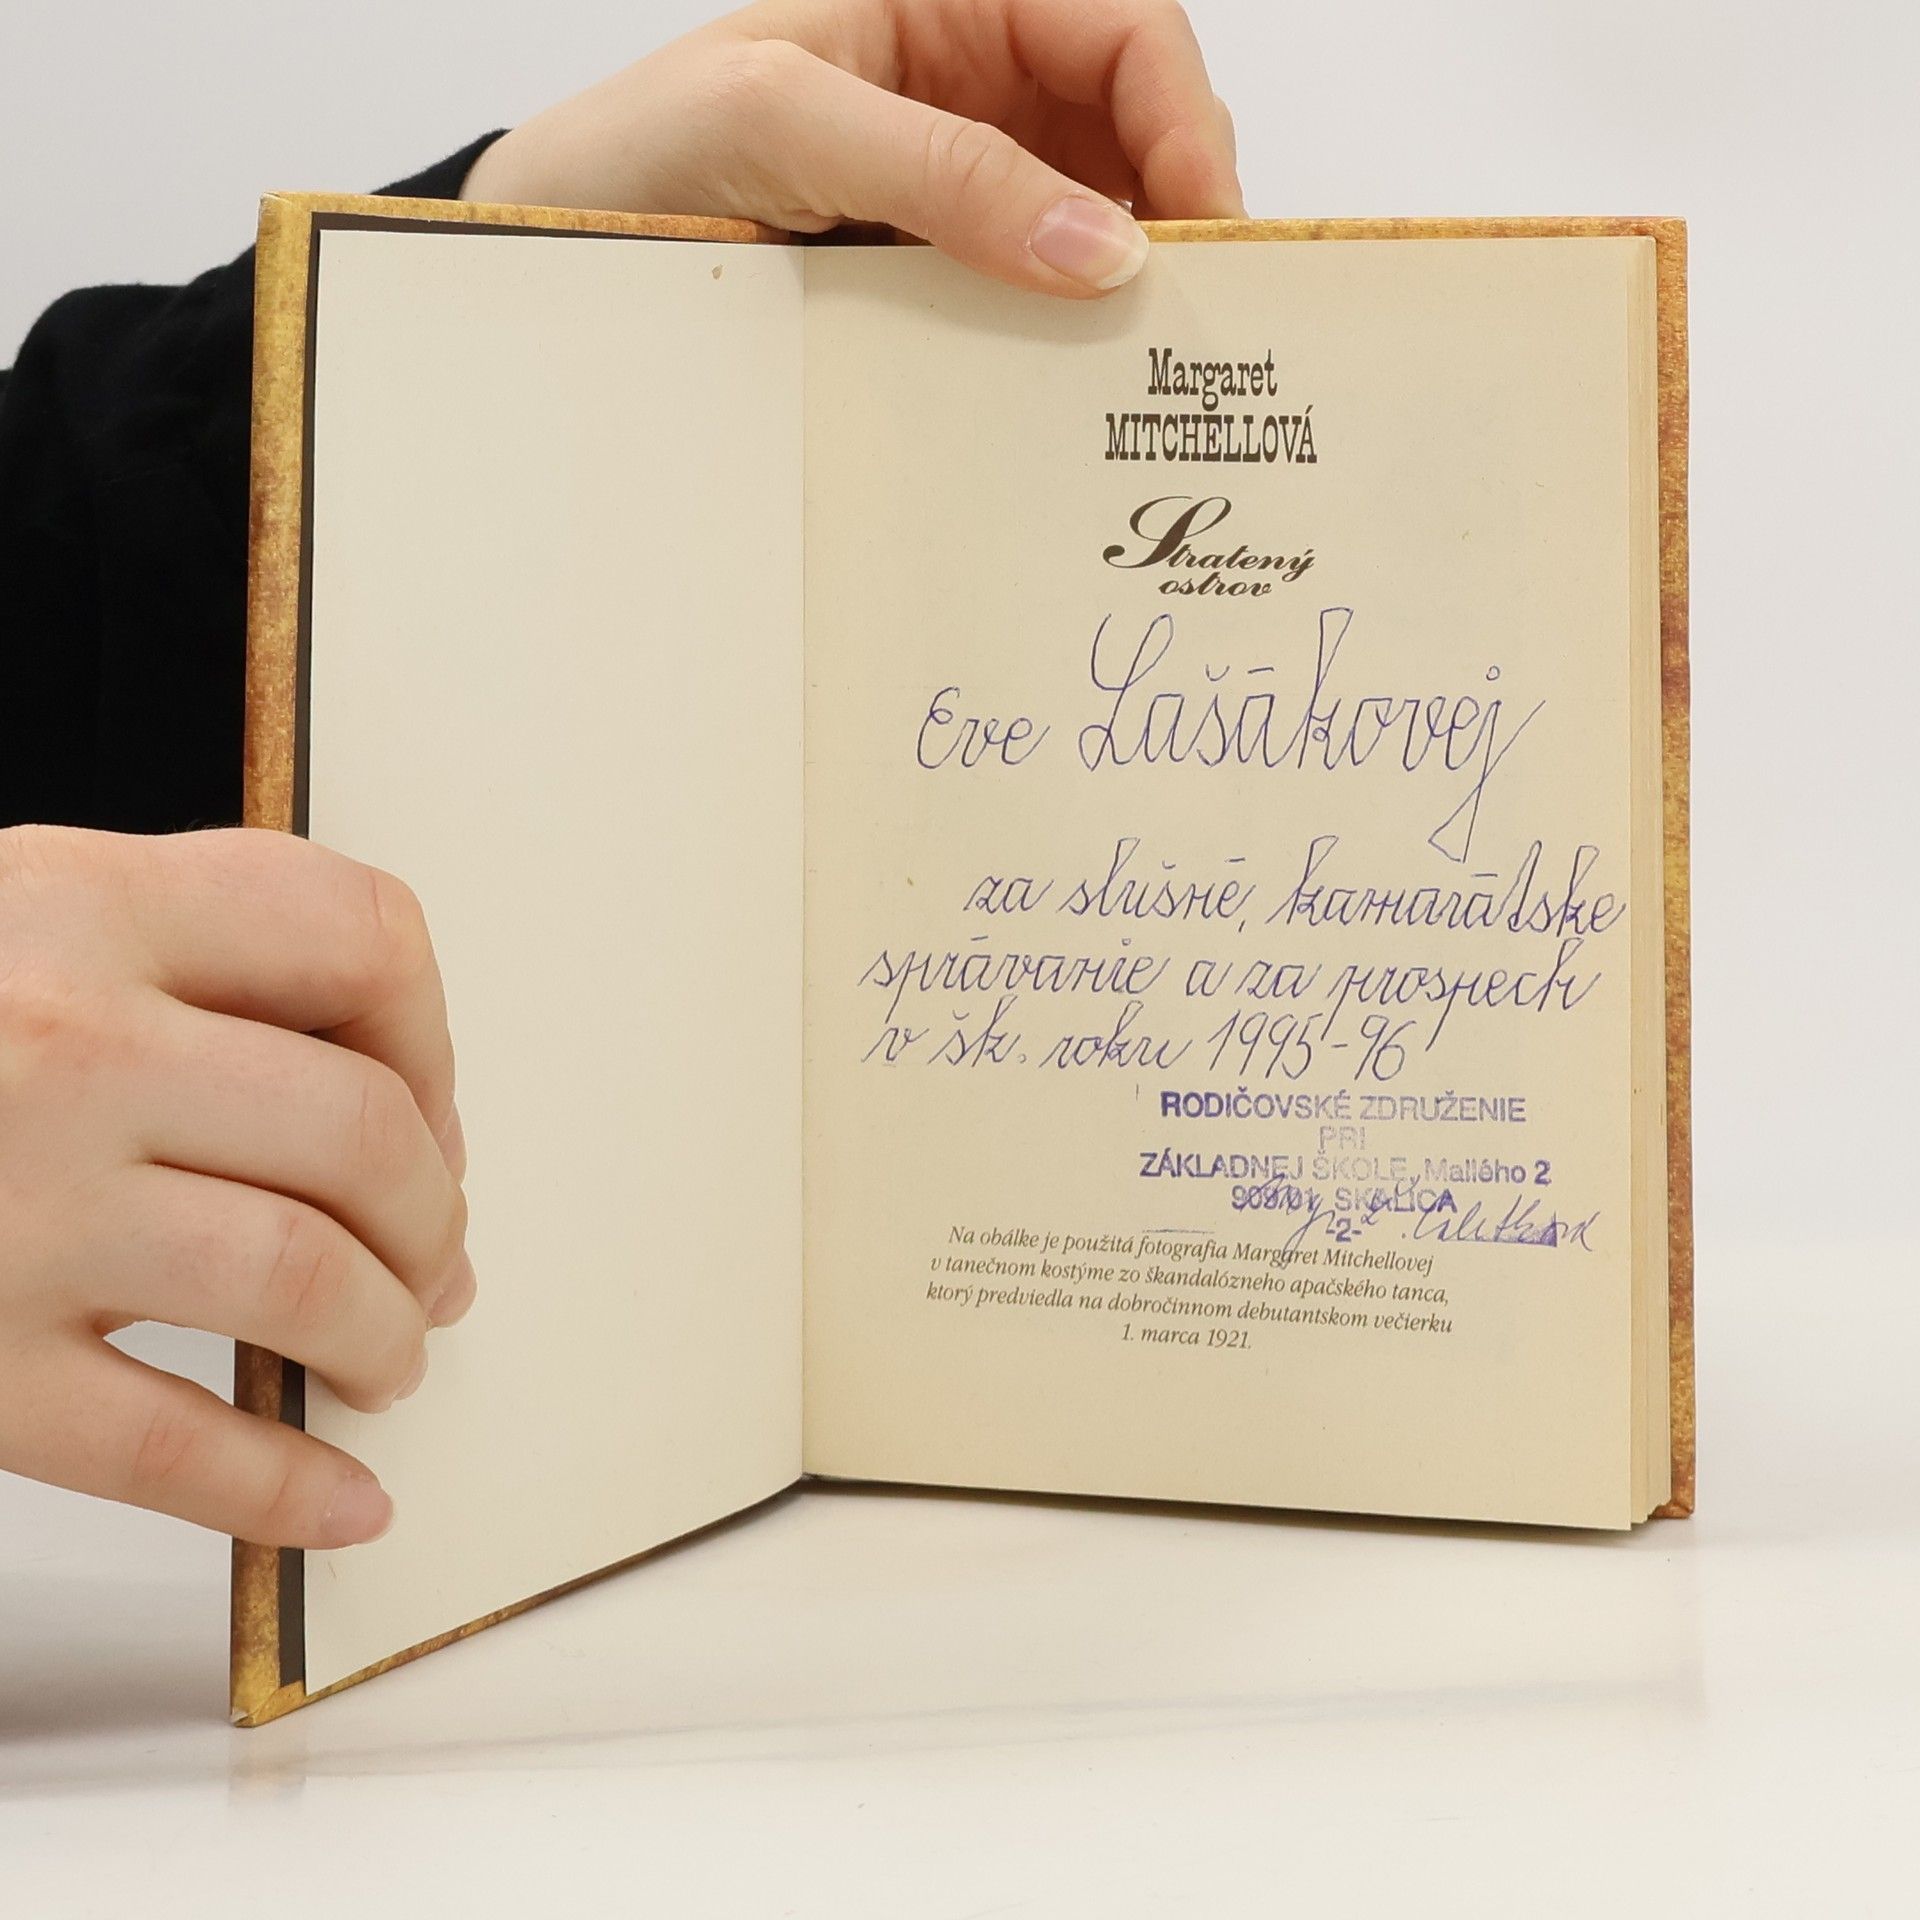 Margaret
MITCHELLOVÁ
Stratený
ostrov
Eve Lašákovej
za slušné, kamarátske
správanie a za prospech
v šk. roku 1995-96
RODIČOVSKÉ ZDRUŽENIE
PRI
ZÁKLADNEJ ŠKOLE, Mallého 2
909 01 SKALICA
-2-
Na obálke je použitá fotografia Margaret Mitchellovej
v tanečnom kostýme zo škandalózneho apačského tanca,
ktorý predviedla na dobročinnom debutantskom večierku
1. marca 1921.